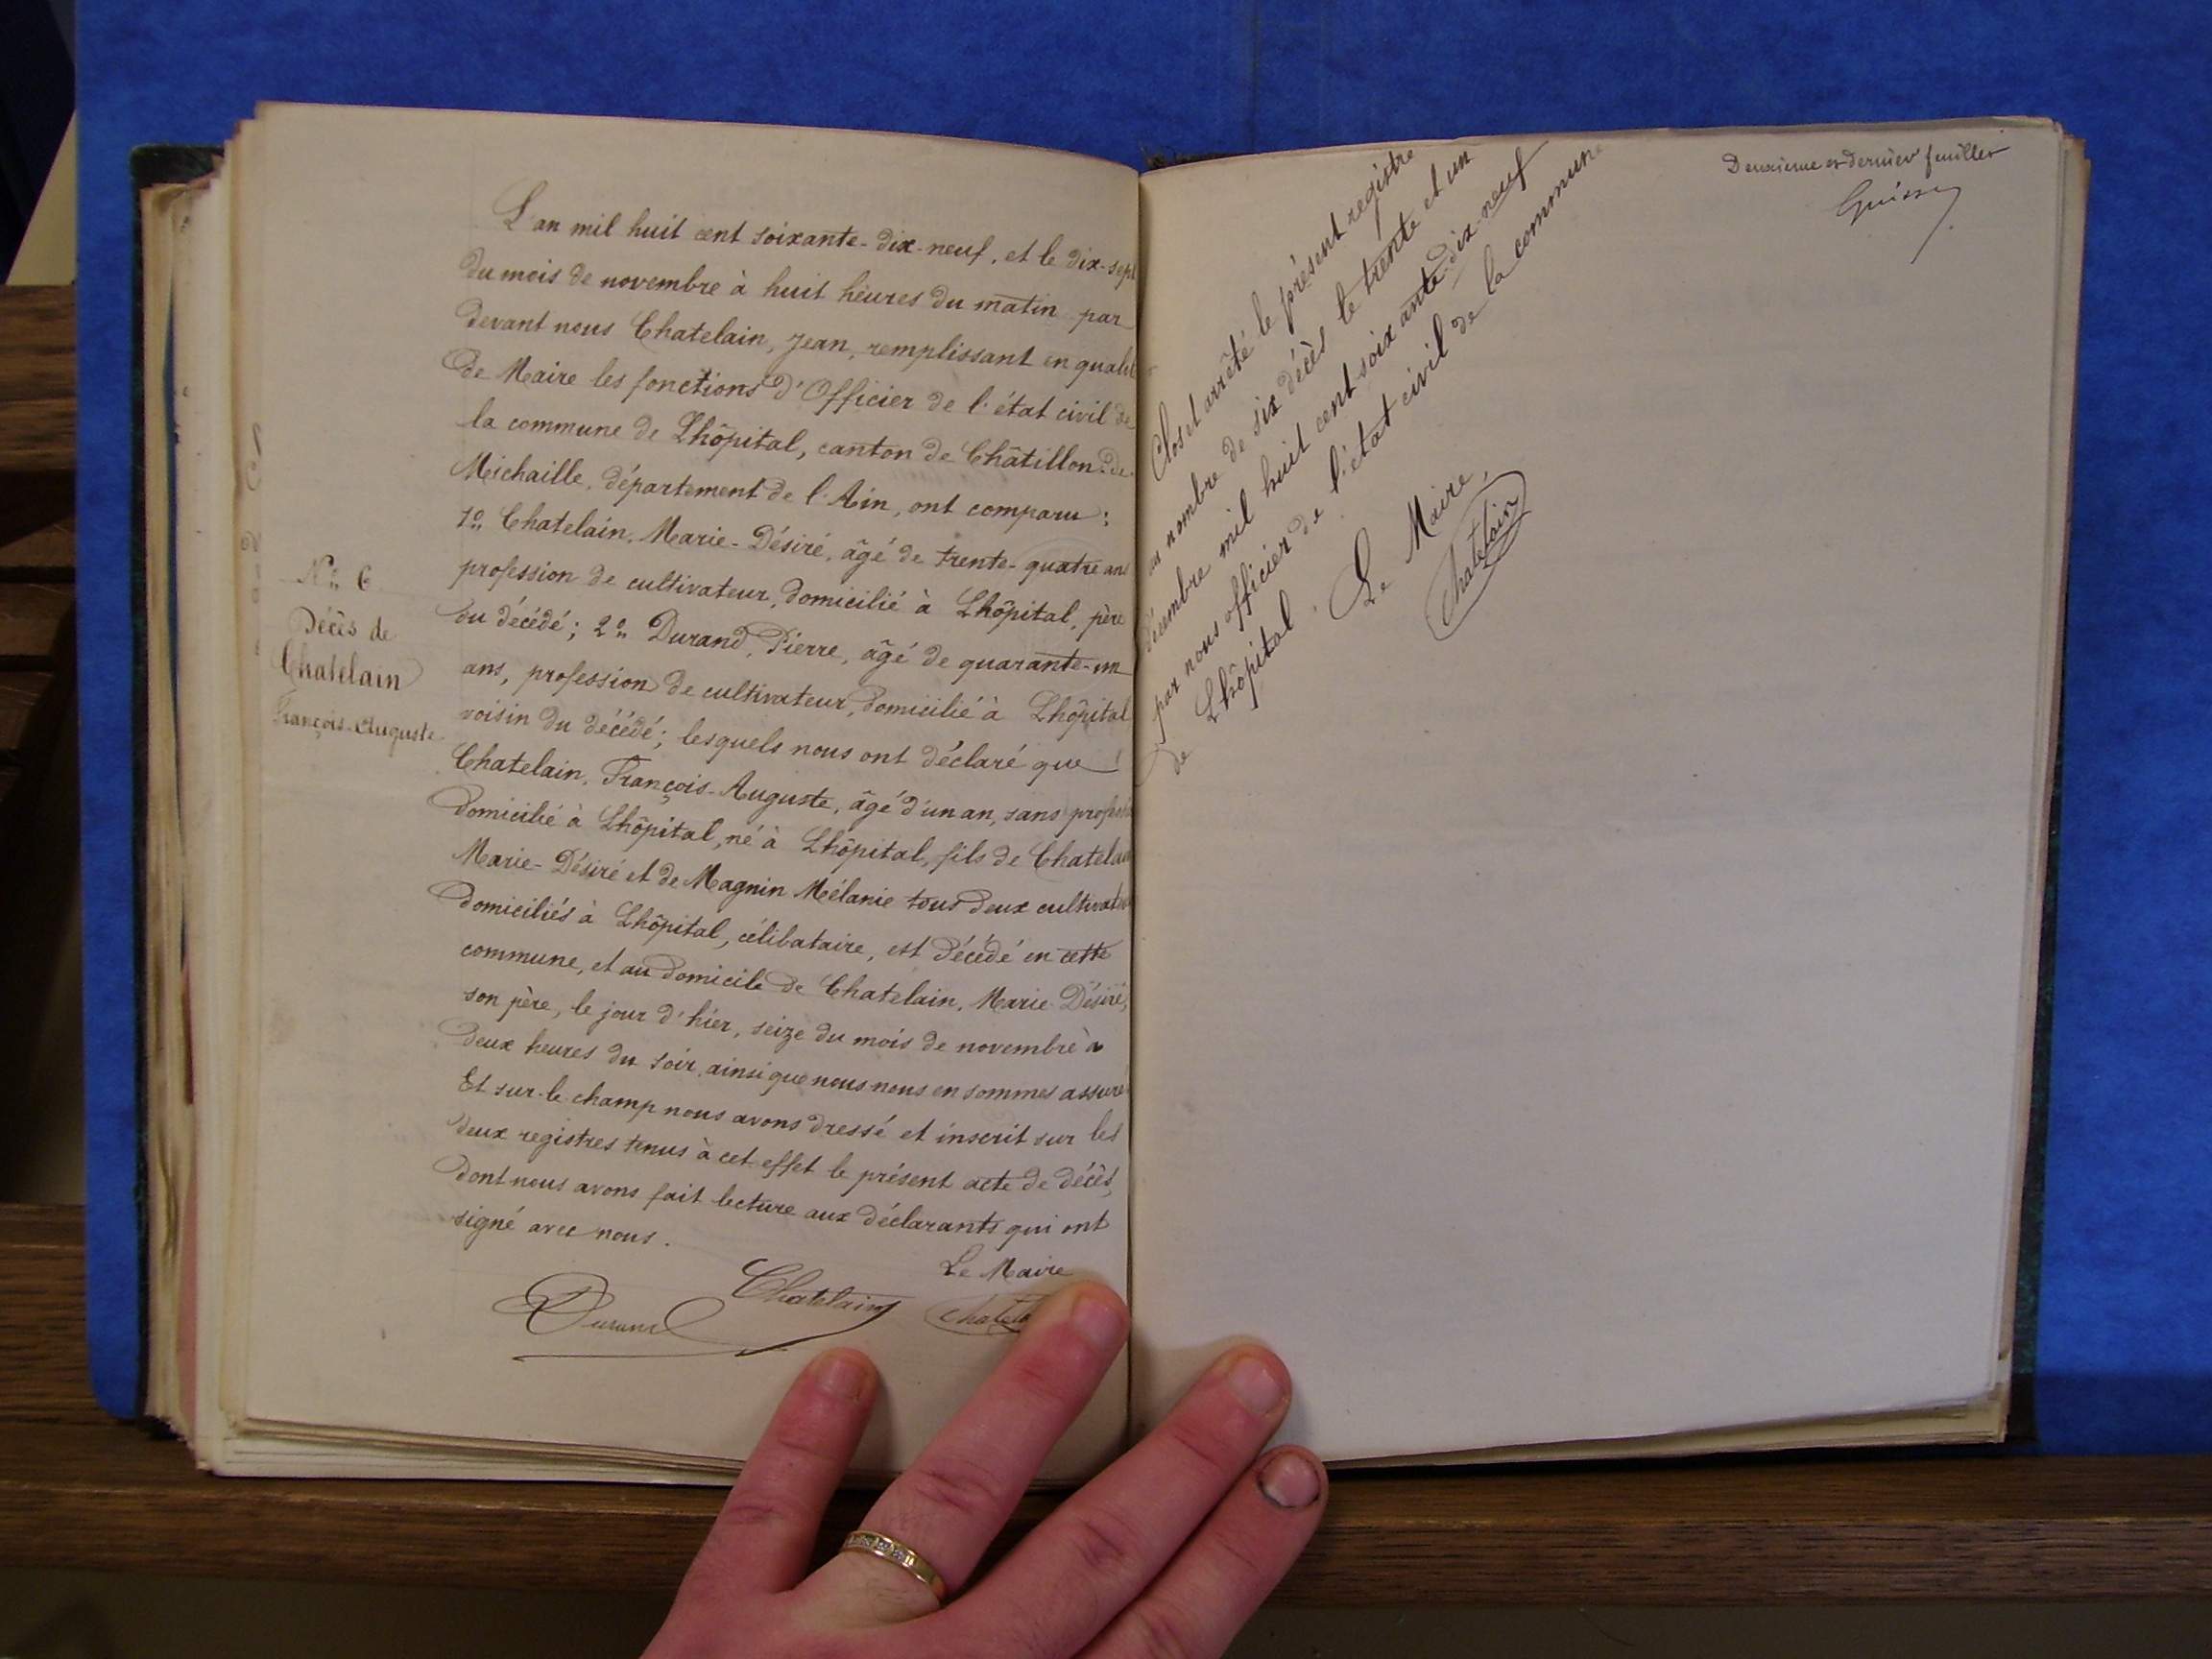 L'an mil huit cent soixante-dix-neuf, et le dix-sept
du mois de novembre à huit heures du matin par
devant nous Chatelain, Jean, remplissant en qualité
de Maire les fonctions d'Officier de l'état civil de
la commune de Lhôpital, canton de Châtillon-de-
Michaille, département de l'Ain, ont comparu :
1o Chatelain, Marie-Désiré, âgé de trente-quatre ans
profession de cultivateur, domicilié à Lhôpital, père
du décédé ; 2o Durand, Pierre, âgé de quarante-un
ans, profession de cultivateur, domicilié à Lhôpital
voisin du décédé ; lesquels nous ont déclaré que
Chatelain, François-Auguste, âgé d'un an, sans profession
domicilié à Lhôpital, né à Lhôpital, fils de Chatelain
Marie-Désiré et de Magnin Mélanie tous deux cultivateurs
domiciliés à Lhôpital, célibataire, est décédé en cette
commune, et au domicile de Chatelain, Marie-Désiré,
son père, le jour d'hier, seize du mois de novembre à
deux heures du soir, ainsi que nous nous en sommes assuré
Et sur-le-champ nous avons dressé et inscrit sur les
deux registres tenus à cet effet le présent acte de décès,
dont nous avons fait lecture aux déclarants qui ont
signé avec nous.
Le Maire
Durand Chatelain Chatelain
No 6
Décès de
Chatelain
François-Auguste
Deuxième et dernier feuillet
Clos et arrêté le présent registre
au nombre de six décès le trente et un
décembre mil huit cent soixante-dix-neuf
par nous officier de l'état civil de la commune
de Lhôpital.
Le Maire,
Chatelain